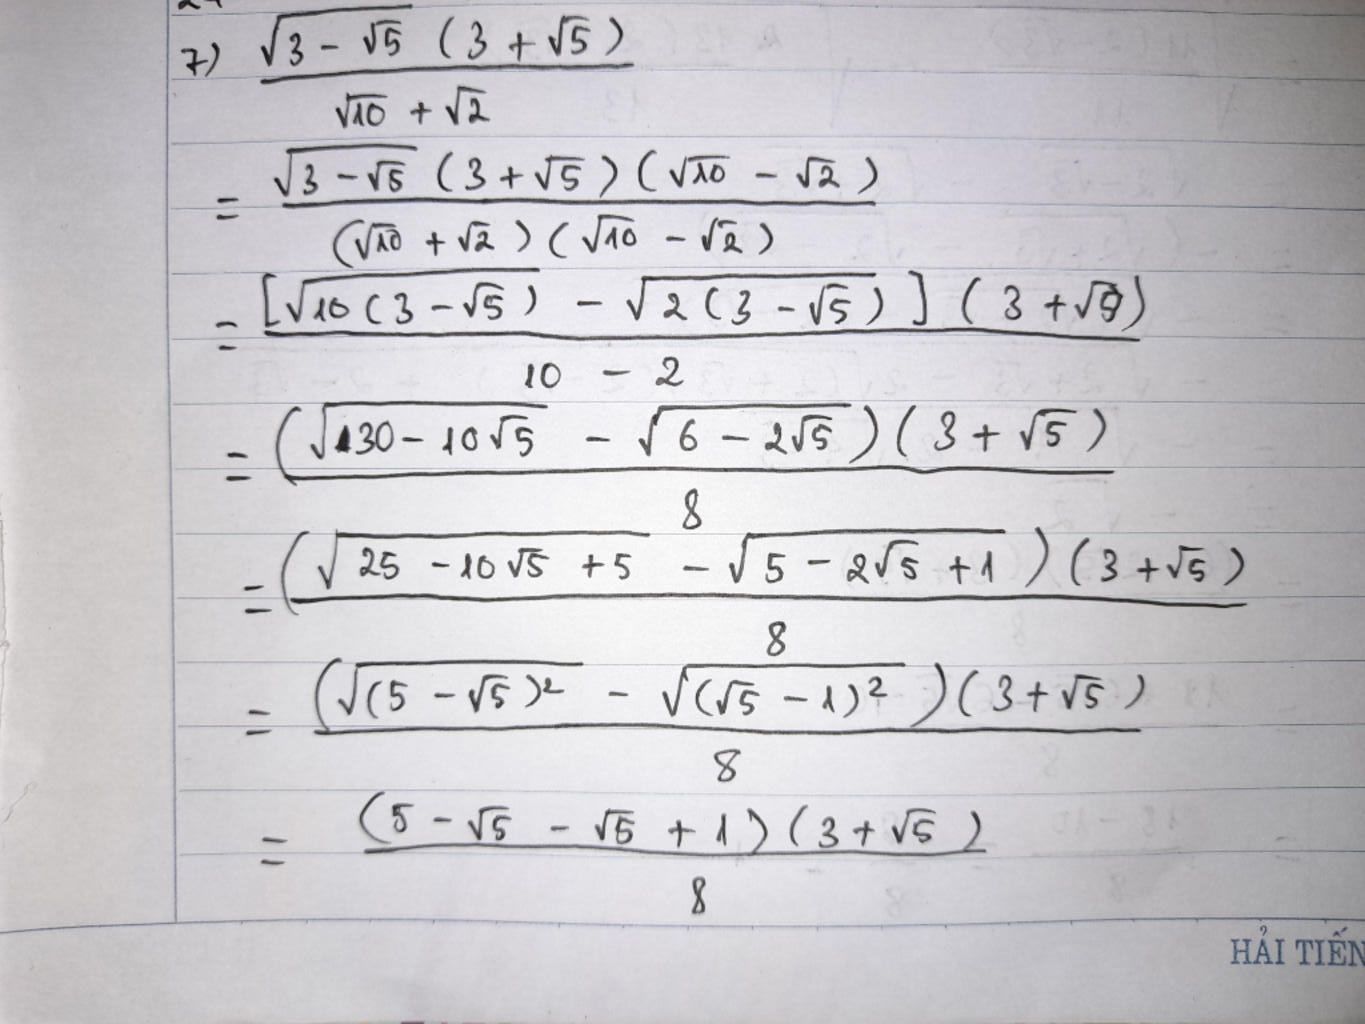 7) √(3 - √5) (3 + √5)
√10 + √2
= √(3 - √5) (3 + √5) (√10 - √2)
(√10 + √2) (√10 - √2)
= [√(10 (3 - √5)) - √(2 (3 - √5))] (3 + √5)
10 - 2
= (√(30 - 10√5) - √(6 - 2√5)) (3 + √5)
8
= (√(25 - 10√5 + 5) - √(5 - 2√5 + 1)) (3 + √5)
8
= (√((5 - √5)²) - √((√5 - 1)²)) (3 + √5)
8
= (5 - √5 - √5 + 1) (3 + √5)
8
HẢI TIẾN